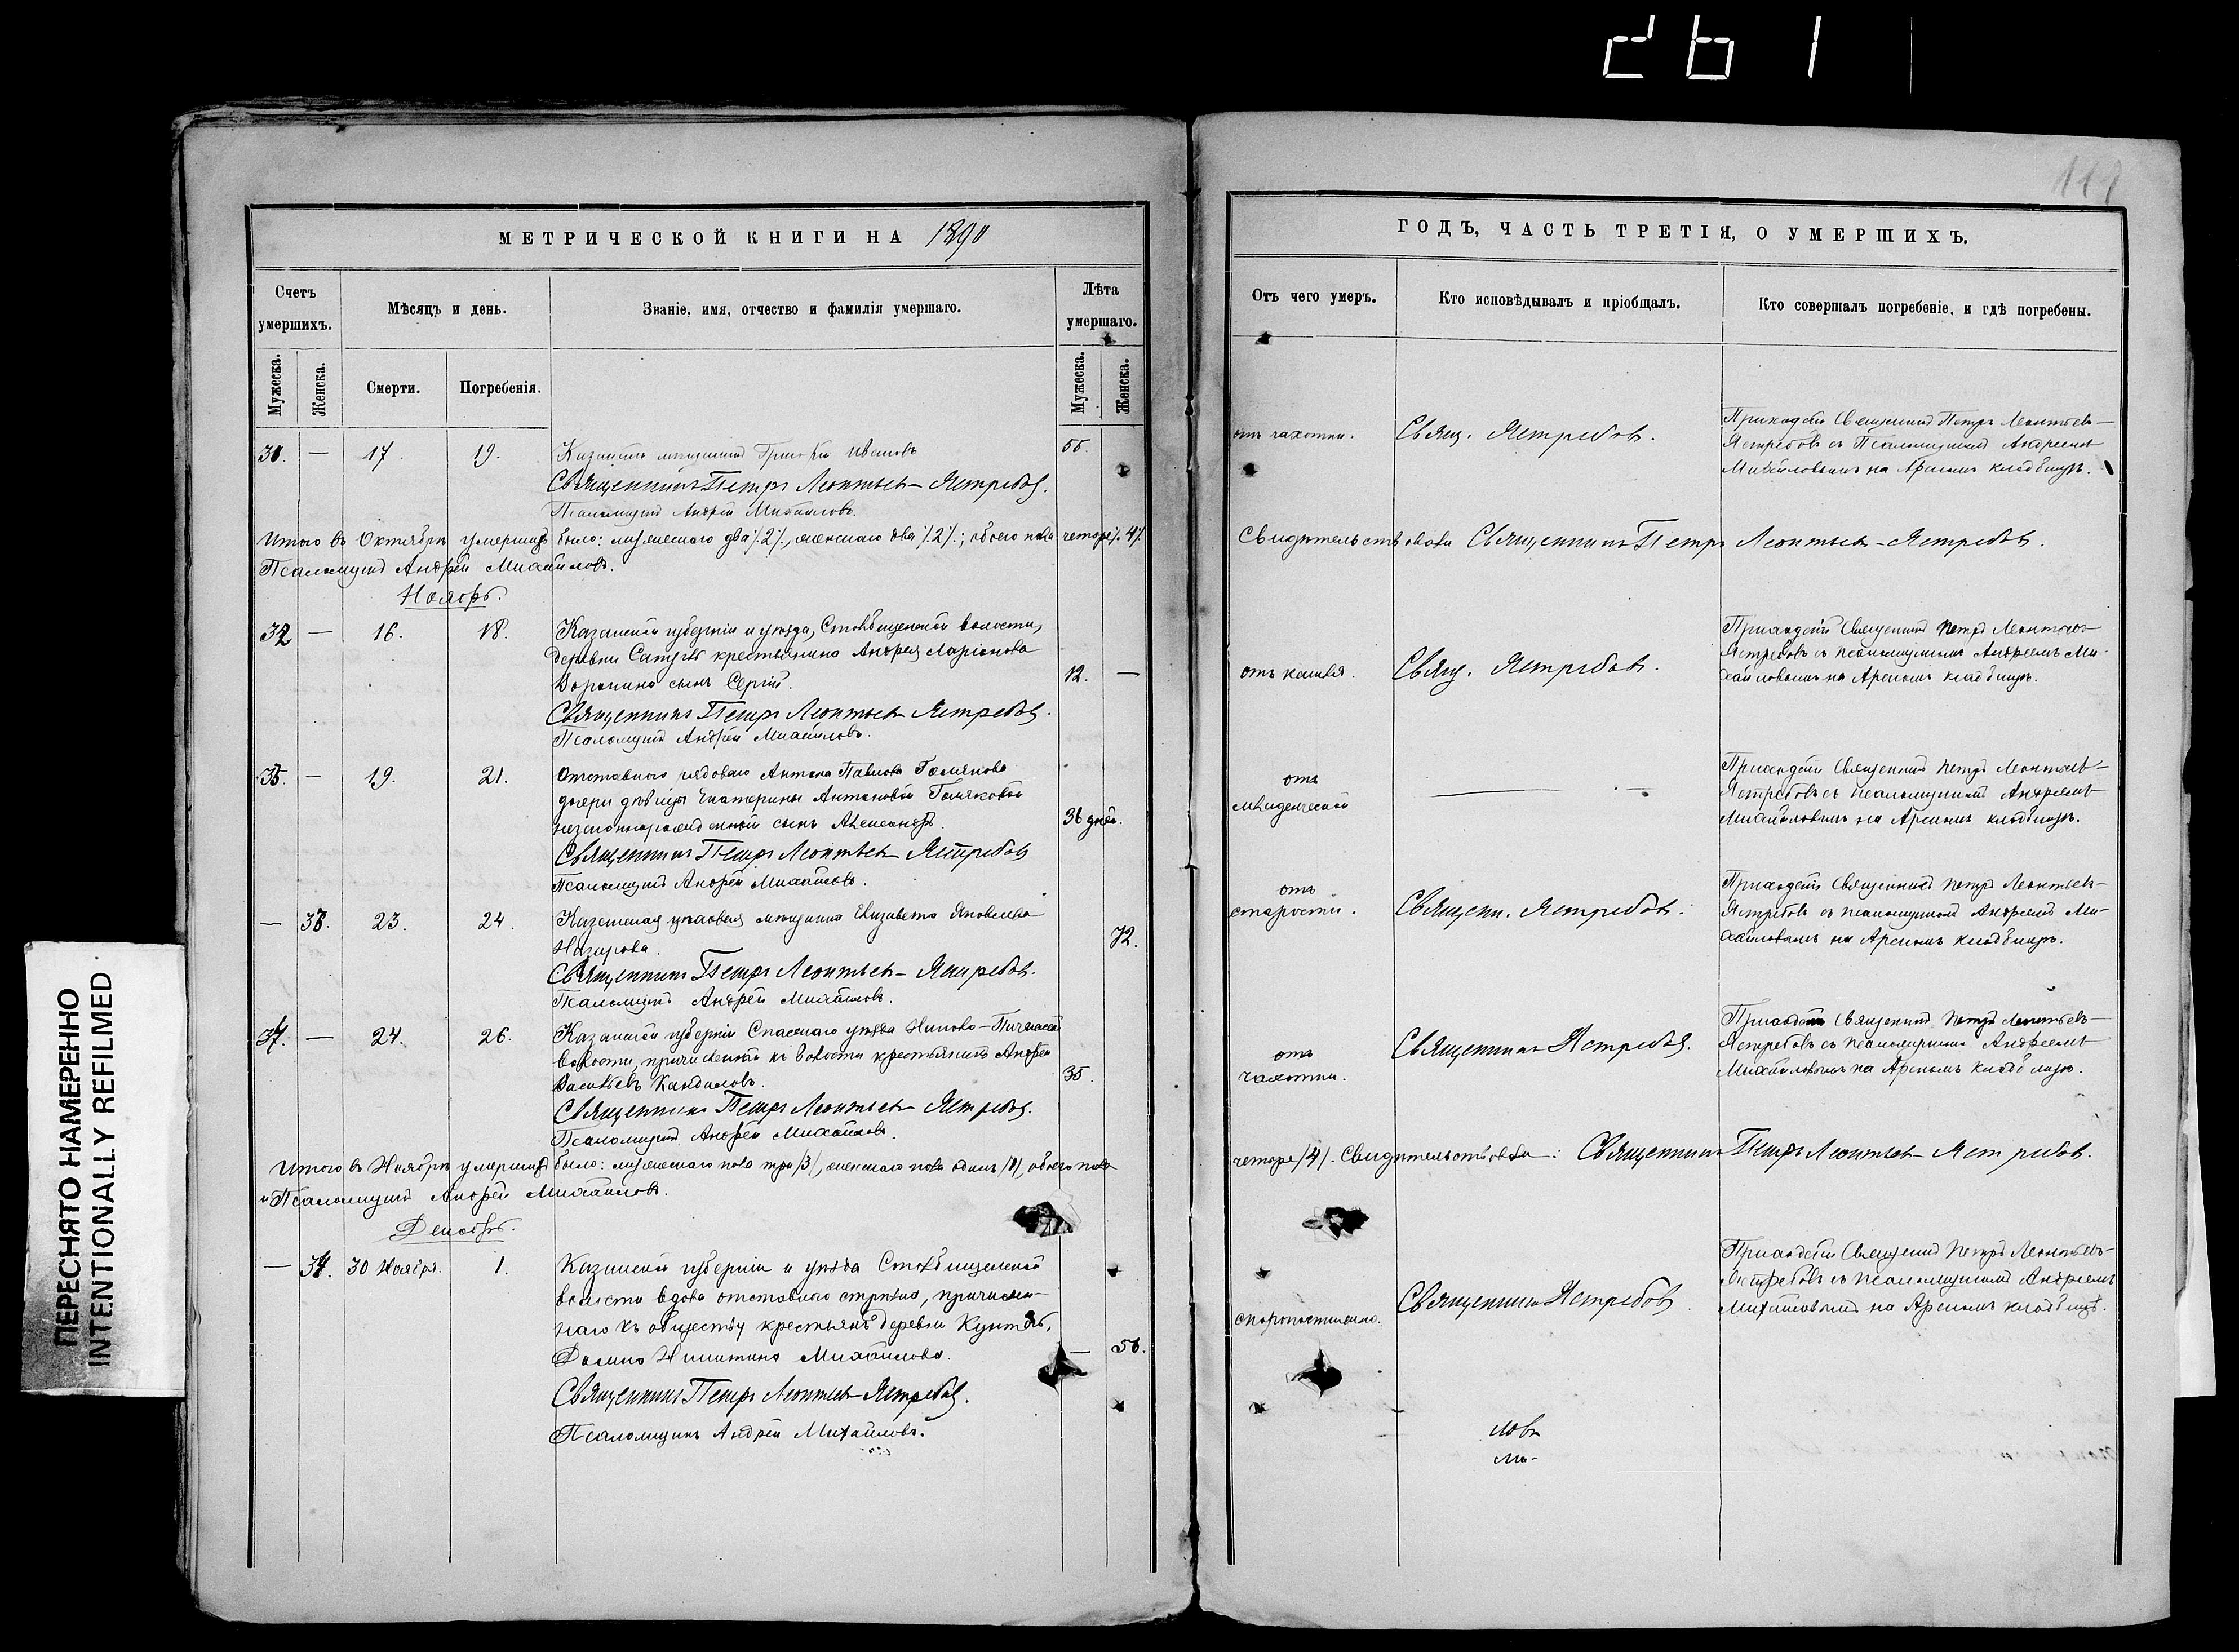 ПЕРЕСНЯТО НАМЕРЕННО
INTENTIONALLY REFILMED
МЕТРИЧЕСКОЙ КНИГИ НА 1890
Счетъ умершихъ.
Мѣсяцъ и день.
Званіе, имя, отчество и фамилія умершаго.
Лѣта умершаго.
Мужеска.
Женска.
Смерти.
Погребенія.
Мужеска.
Женска.
— 17. 19. Иванов 55.
Священникъ Петръ Леонтьев-Ястребов.
Псаломщикъ Андрей Михайловъ.
Итого въ Октябрѣ умершихъ было: мужескаго два /2/, женскаго два /2/; обоего пола четыре /4/
Псаломщикъ Андрей Михайловъ.
Ноябрь.
— 16. 18. Казанской губерніи и уѣзда, Столбищенской волости,
деревни крестьянина Андрея Ларіонова
Воронина сынъ Сергій. 12. —
Священникъ Петръ Леонтьев-Ястребов.
Псаломщикъ Андрей Михайловъ.
— 19. 21. Отставнаго рядоваго Антона Павлова
дочери дѣвицы Екатерины Антоновой
незаконнорожденный сынъ Александръ. 36 дней.
Священникъ Петръ Леонтьев-Ястребов
Псаломщикъ Андрей Михайловъ.
— 23. 24. Казанская мѣщанка Елизавета Яковлева
Назарова. 72.
Священникъ Петръ Леонтьев-Ястребов.
Псаломщикъ Андрей Михайловъ.
— 24. 26. Казанской губерніи Спасскаго уѣзда
волости, причисленный къ волости крестьянинъ Андрей
Васильевъ 35.
Священникъ Петръ Леонтьев-Ястребов.
Псаломщикъ Андрей Михайловъ.
Итого въ Ноябрѣ умершихъ было: мужескаго пола три /3/, женскаго пола одинъ /1/, обоего пола
и Псаломщикъ Андрей Михайловъ.
Декабрь.
— 30 Ноября. 1. Казанской губерніи и уѣзда Столбищенской
волости вдова отставнаго стрѣлка, причислен-
наго къ обществу крестьянъ деревни
Никитина Михайлова. —
Священникъ Петръ Леонтьев-Ястребов.
Псаломщикъ Андрей Михайловъ.
ГОДЪ, ЧАСТЬ ТРЕТІЯ, О УМЕРШИХЪ.
Отъ чего умеръ.
Кто исповѣдывалъ и пріобщалъ.
Кто совершалъ погребеніе, и гдѣ погребены.
отъ чахотки. Свящ. Ястребов. Приходскій Священникъ Петръ Леонтьевъ-
Ястребовъ съ Псаломщикомъ Андреемъ
Михайловымъ на Арскомъ кладбищѣ.
Свидѣтельствовали Священникъ Петръ Леонтьев-Ястребов.
отъ кашля. Свящ. Ястребов. Приходскій Священникъ Петръ Леонтьевъ-
Ястребовъ съ псаломщикомъ Андреемъ Ми-
хайловымъ на Арскомъ кладбищѣ.
отъ
младенческой — Приходскій Священникъ Петръ Леонтьевъ-
Ястребовъ съ псаломщикомъ Андреемъ
Михайловымъ на Арскомъ кладбищѣ.
отъ
старости. Священ. Ястребов. Приходскій Священникъ Петръ Леонтьевъ-
Ястребовъ съ псаломщикомъ Андреемъ Ми-
хайловымъ на Арскомъ кладбищѣ.
отъ
чахотки. Священникъ Ястребов. Приходскій Священникъ Петръ Леонтьевъ-
Ястребовъ съ псаломщикомъ Андреемъ
Михайловымъ на Арскомъ кладбищѣ.
четыре /4/. Свидѣтельствовали: Священникъ Петръ Леонтьев-Ястребов.
скоропостижно. Священникъ Ястребов. Приходскій Священникъ Петръ Леонтьевъ-
Ястребовъ съ псаломщикомъ Андреемъ
Михайловымъ на Арскомъ кладбищѣ.
ловъ
Ми-